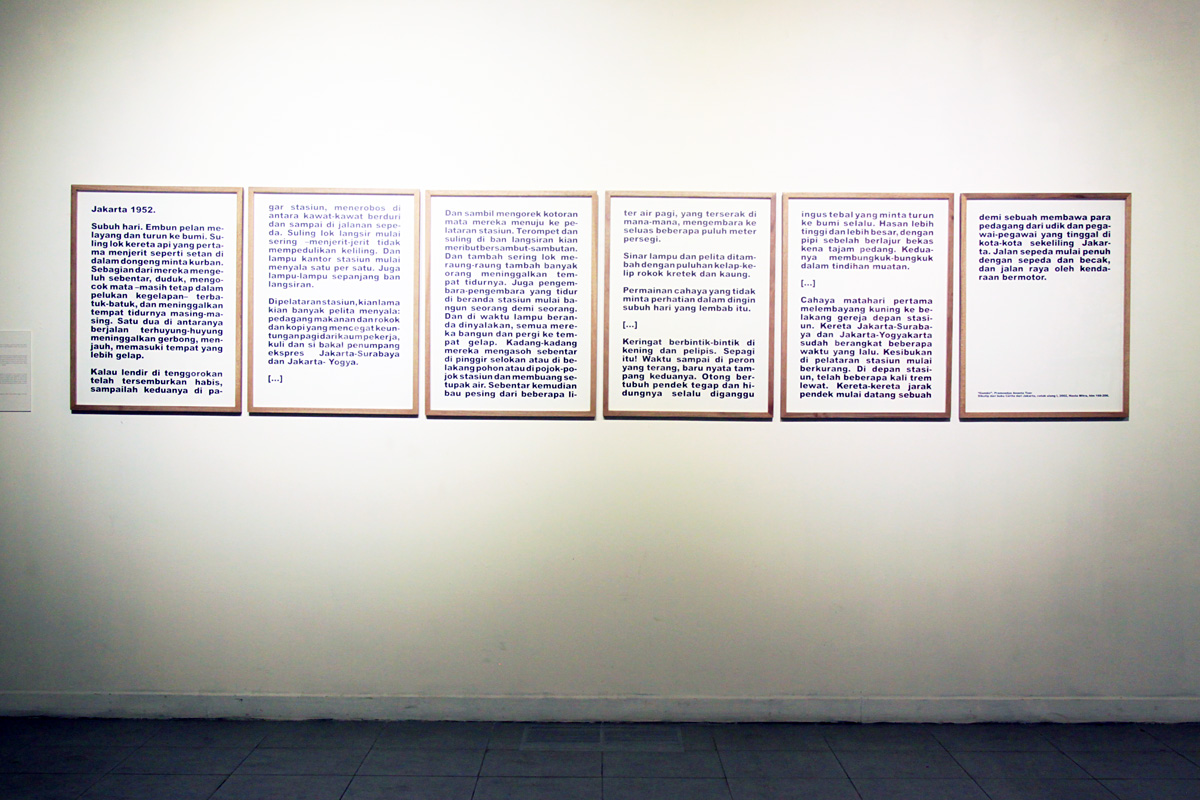 Jakarta 1952.
Subuh hari. Embun pelan me-
layang dan turun ke bumi. Su-
ling lok kereta api yang perta-
ma menjerit seperti setan di
dalam dongeng minta kurban.
Sebagian dari mereka menge-
luh sebentar, duduk, mengo-
cok mata –masih tetap dalam
pelukan kegelapan– terba-
tuk-batuk, dan meninggalkan
tempat tidurnya masing-ma-
sing. Satu dua di antaranya
berjalan terhuyung-huyung
meninggalkan gerbong, men-
jauh, memasuki tempat yang
lebih gelap.
Kalau lendir di tenggorokan
telah tersemburkan habis,
sampailah keduanya di pa-
gar stasiun, menerobos di
antara kawat-kawat berduri
dan sampai di jalanan sepe-
da. Suling lok langsir mulai
sering –menjerit-jerit tidak
mempedulikan keliling. Dan
lampu kantor stasiun mulai
menyala satu per satu. Juga
lampu-lampu sepanjang ban
langsiran.
Dipelataran stasiun, kian lama
kian banyak pelita menyala:
pedagang makanan dan rokok
dan kopi yang mencegat keun-
tungan pagi dari kaum pekerja,
kuli dan si bakal penumpang
ekspres Jakarta-Surabaya
dan Jakarta- Yogya.
[...]
Dan sambil mengorek kotoran
mata mereka menuju ke pe-
lataran stasiun. Terompet dan
suling di ban langsiran kian
meributbersambut-sambutan.
Dan tambah sering lok me-
raung-raung tambah banyak
orang meninggalkan tem-
pat tidurnya. Juga pengem-
bara-pengembara yang tidur
di beranda stasiun mulai ba-
ngun seorang demi seorang.
Dan di waktu lampu beran-
da dinyalakan, semua mere-
ka bangun dan pergi ke tem-
pat gelap. Kadang-kadang
mereka mengasoh sebentar
di pinggir selokan atau di be-
lakang pohon atau di pojok-po-
jok stasiun dan membuang se-
tupak air. Sebentar kemudian
bau pesing dari beberapa li-
ter air pagi, yang terserak di
mana-mana, mengembara ke
seluas beberapa puluh meter
persegi.
Sinar lampu dan pelita ditam-
bah dengan puluhan kelap-ke-
lip rokok kretek dan kaung.
Permainan cahaya yang tidak
minta perhatian dalam dingin
subuh hari yang lembab itu.
[...]
Keringat berbintik-bintik di
kening dan pelipis. Sepagi
itu! Waktu sampai di peron
yang terang, baru nyata tam-
pang keduanya. Otong ber-
tubuh pendek tegap dan hi-
dungnya selalu diganggu
ingus tebal yang minta turun
ke bumi selalu. Hasan lebih
tinggi dan lebih besar, dengan
pipi sebelah berlajur bekas
kena tajam pedang. Kedua-
nya membungkuk-bungkuk
dalam tindihan muatan.
[...]
Cahaya matahari pertama
melembayang kuning ke be-
lakang gereja depan stasi-
un. Kereta Jakarta-Suraba-
ya dan Jakarta-Yogyakarta
sudah berangkat beberapa
waktu yang lalu. Kesibukan
di pelataran stasiun mulai
berkurang. Di depan stasi-
un, telah beberapa kali trem
lewat. Kereta-kereta jarak
pendek mulai datang sebuah
demi sebuah membawa para
pedagang dari udik dan pega-
wai-pegawai yang tinggal di
kota-kota sekeliling Jakar-
ta. Jalan sepeda mulai penuh
dengan sepeda dan becak,
dan jalan raya oleh kenda-
raan bermotor.